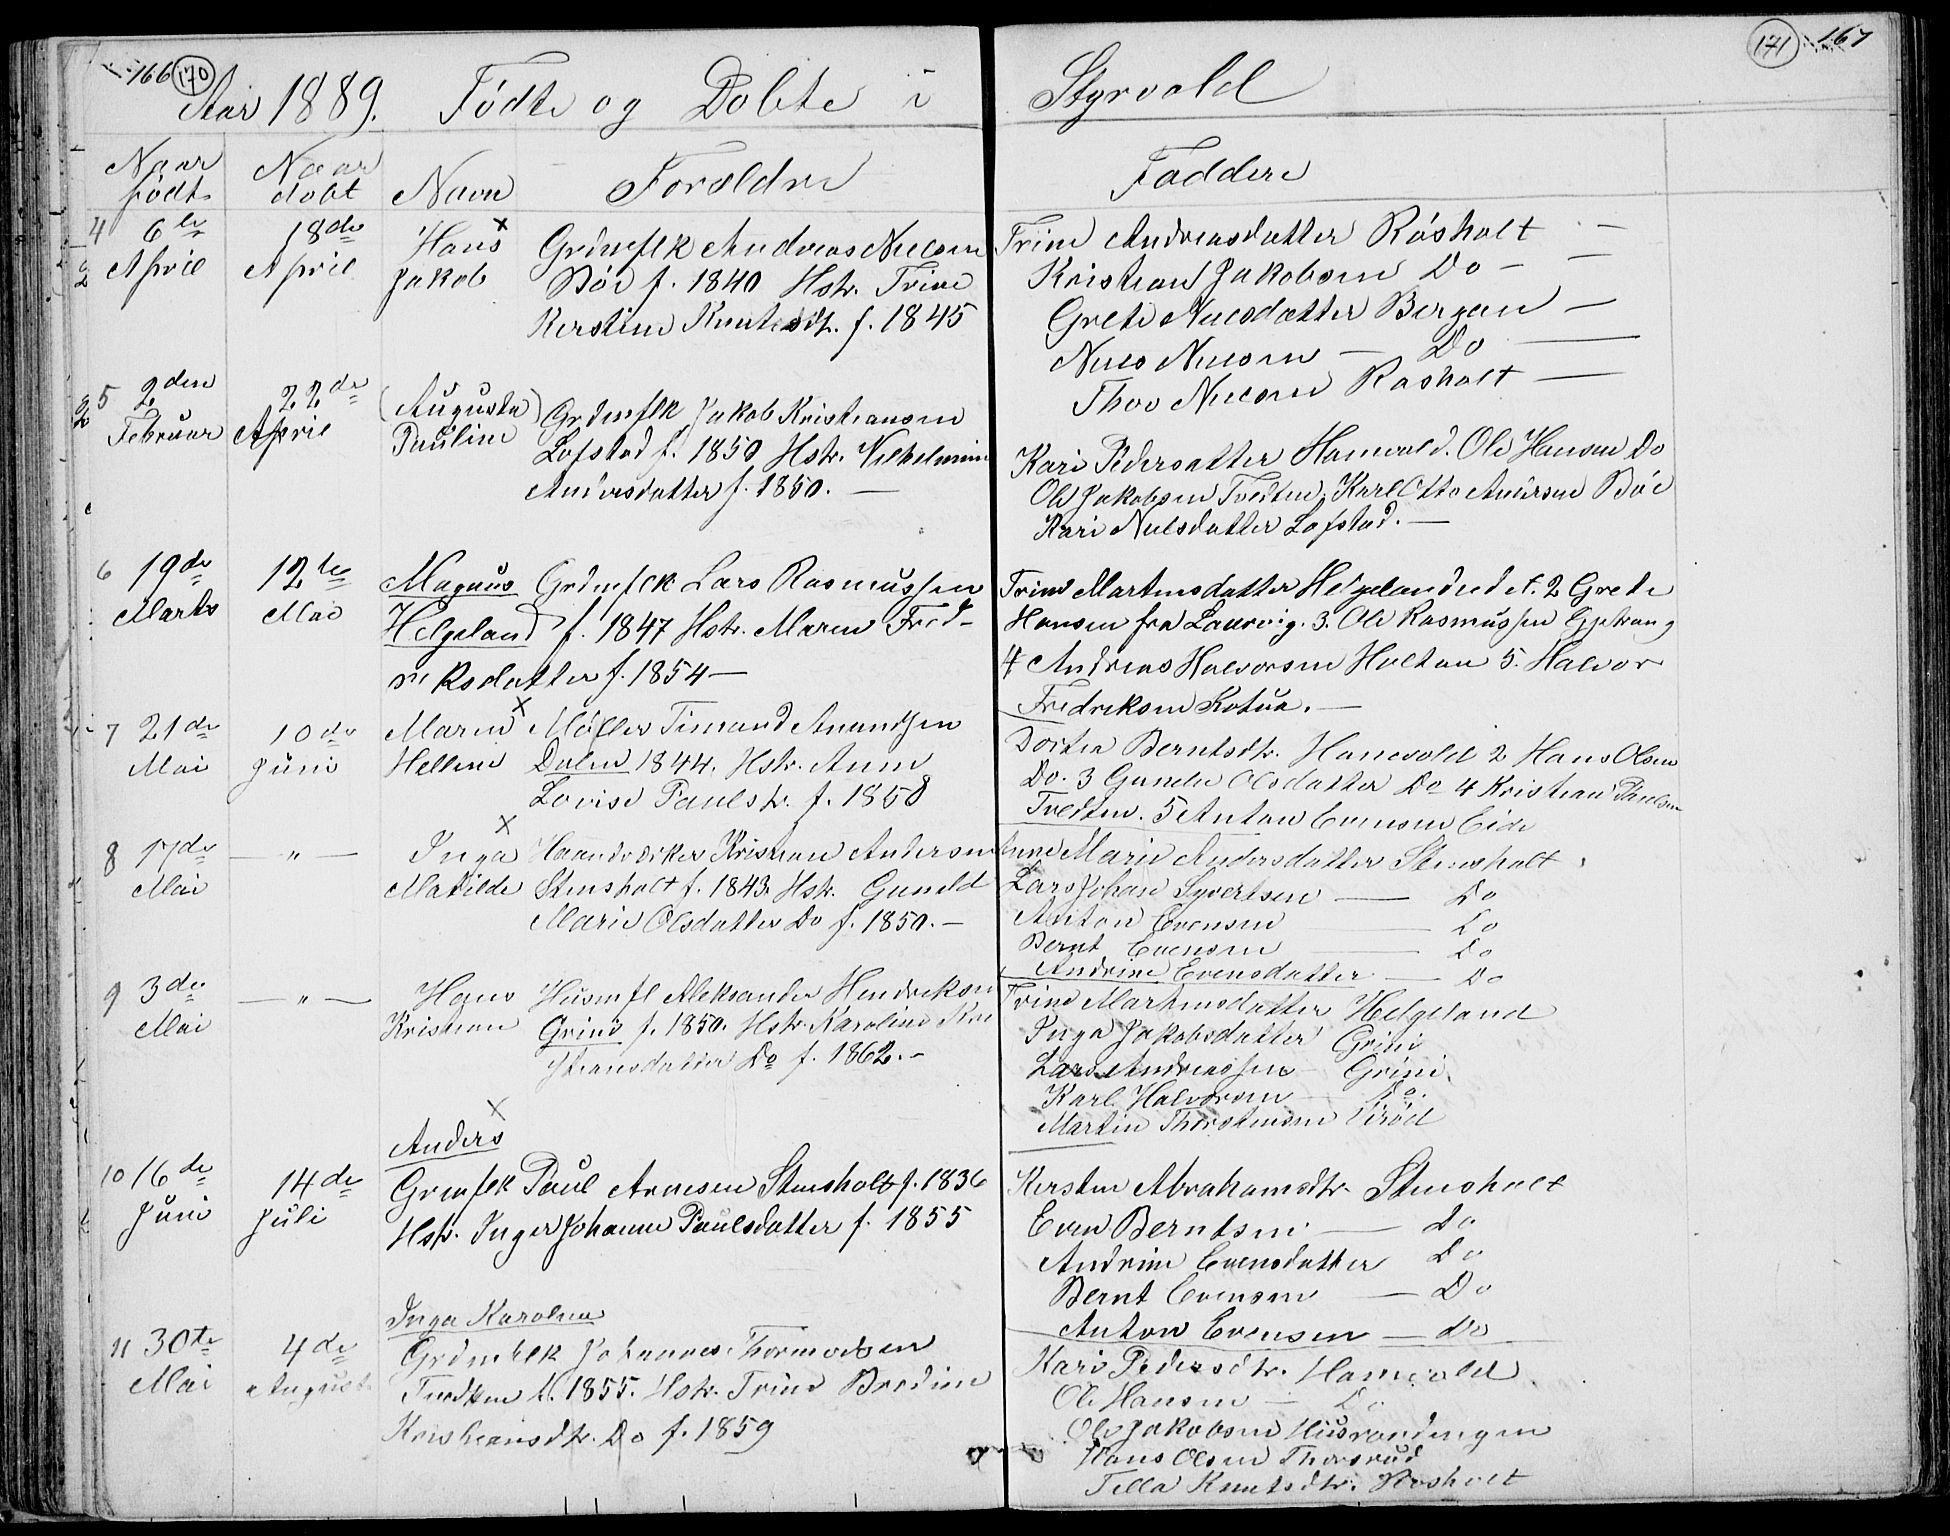 166 170
171 167
Aar 1889. Fødte og Døbte i Styrvold
Naar født Naar døbt Navn Forældre Faddere
4 6te April 18de April Hans Jakob
Grdmflk Andreas Nielsen
Bøe f. 1840 Hstr. Trine
Kerstine Knutsdtr. f. 1845
Trine Andreasdatter Røsholt —
Kristian Jakobsen Do — —
Grete Nielsdatter Bergan —
Niels Nielsen — Do —
Thov Nielsen Røsholt —
5 2den Februar 22de April (Augusta) Pauline
Grdmflk Jakob Kristiansen
Lofstad f. 1850 Hstr. Vilhelmine
Andersdatter f. 1850. —
Kari Pedersdatter Hanevold. Ole Hansen Do
Ole Jakobsen Tvedten, Karl Otto Andersen Bøe
Kari Nielsdatter Lofstad. —
6 19de Marts 12te Mai Magnus Helgeland
Grdmflk Lars Rasmussen
f. 1847 Hstr. Maren Fred-
riksdatter f. 1854 —
Trine Martinsdatter Helgeland 2 Grete
Hansen fra Laurvig. 3. Ole Rasmussen
4 Andreas Halvorsen Holtan 5. Halvor
Fredriksen Kotua. —
7 21de Mai 10de Juni Maren Helline
Møller Timand Amundsen
Dalen 1844. Hstr. Anne
Lovise Paulsdtr. f. 1858
Dortea Berntsdtr. Hanevold 2 Hans Olsen
Do. 3 Gunda Olsdatter Do 4 Kristian Paulsen
Tvedten. 5 Anton Evensen Eide
8 17de Mai — " — Inga Matilde
Haandværker Kristian Andersen
Stensholt f. 1843. Hstr. Gunild
Marie Olsdatter Do f. 1850. —
Anne Marie Andersdatter Stensholt
Lars Johan Syvertsen — Do
Anton Evensen Do
Bernt Evensen Do
Andrine Evensdatter — Do
9 3de Mai — " — Hans Kristian
Husmfl Aleksander Hendriksen
Grini f. 1850. Hstr. Karoline Kri
stiansdatter Do f. 1862. —
Trine Martinsdatter Helgeland
Inga Jakobsdatter Grini
Lars Andreassen Grini.
Karl Halvorsen Do.
Martin Thorstensen
Anders
10 16de Juni 14de Juli
Grmflk Paul Arnesen Stensholt f. 1836
Hstr. Inger Johanne Paulsdatter f. 1855
Kersten Abrahamsdtr. Stensholt
Even Berntsen — Do
Andrine Evensdatter Do
Bernt Evensen — Do
Anton Evensen — Do
Inga Karoline
11 30te Mai 4de August
Grdmflk Johannes Thormodsen
Tvedten f. 1855. Hstr. Trine Bredine
Kristiansdtr. Do f. 1859
Kari Pedersdtr. Hanevold
Ole Hansen — Do
Ole Jakobsen Husvandingen
Hans Olsen Thorsrud
Tilla Knutsdtr. Røsholt